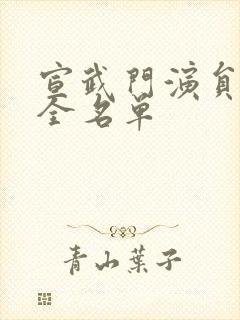 宣武門演員
全名單
青山葉子